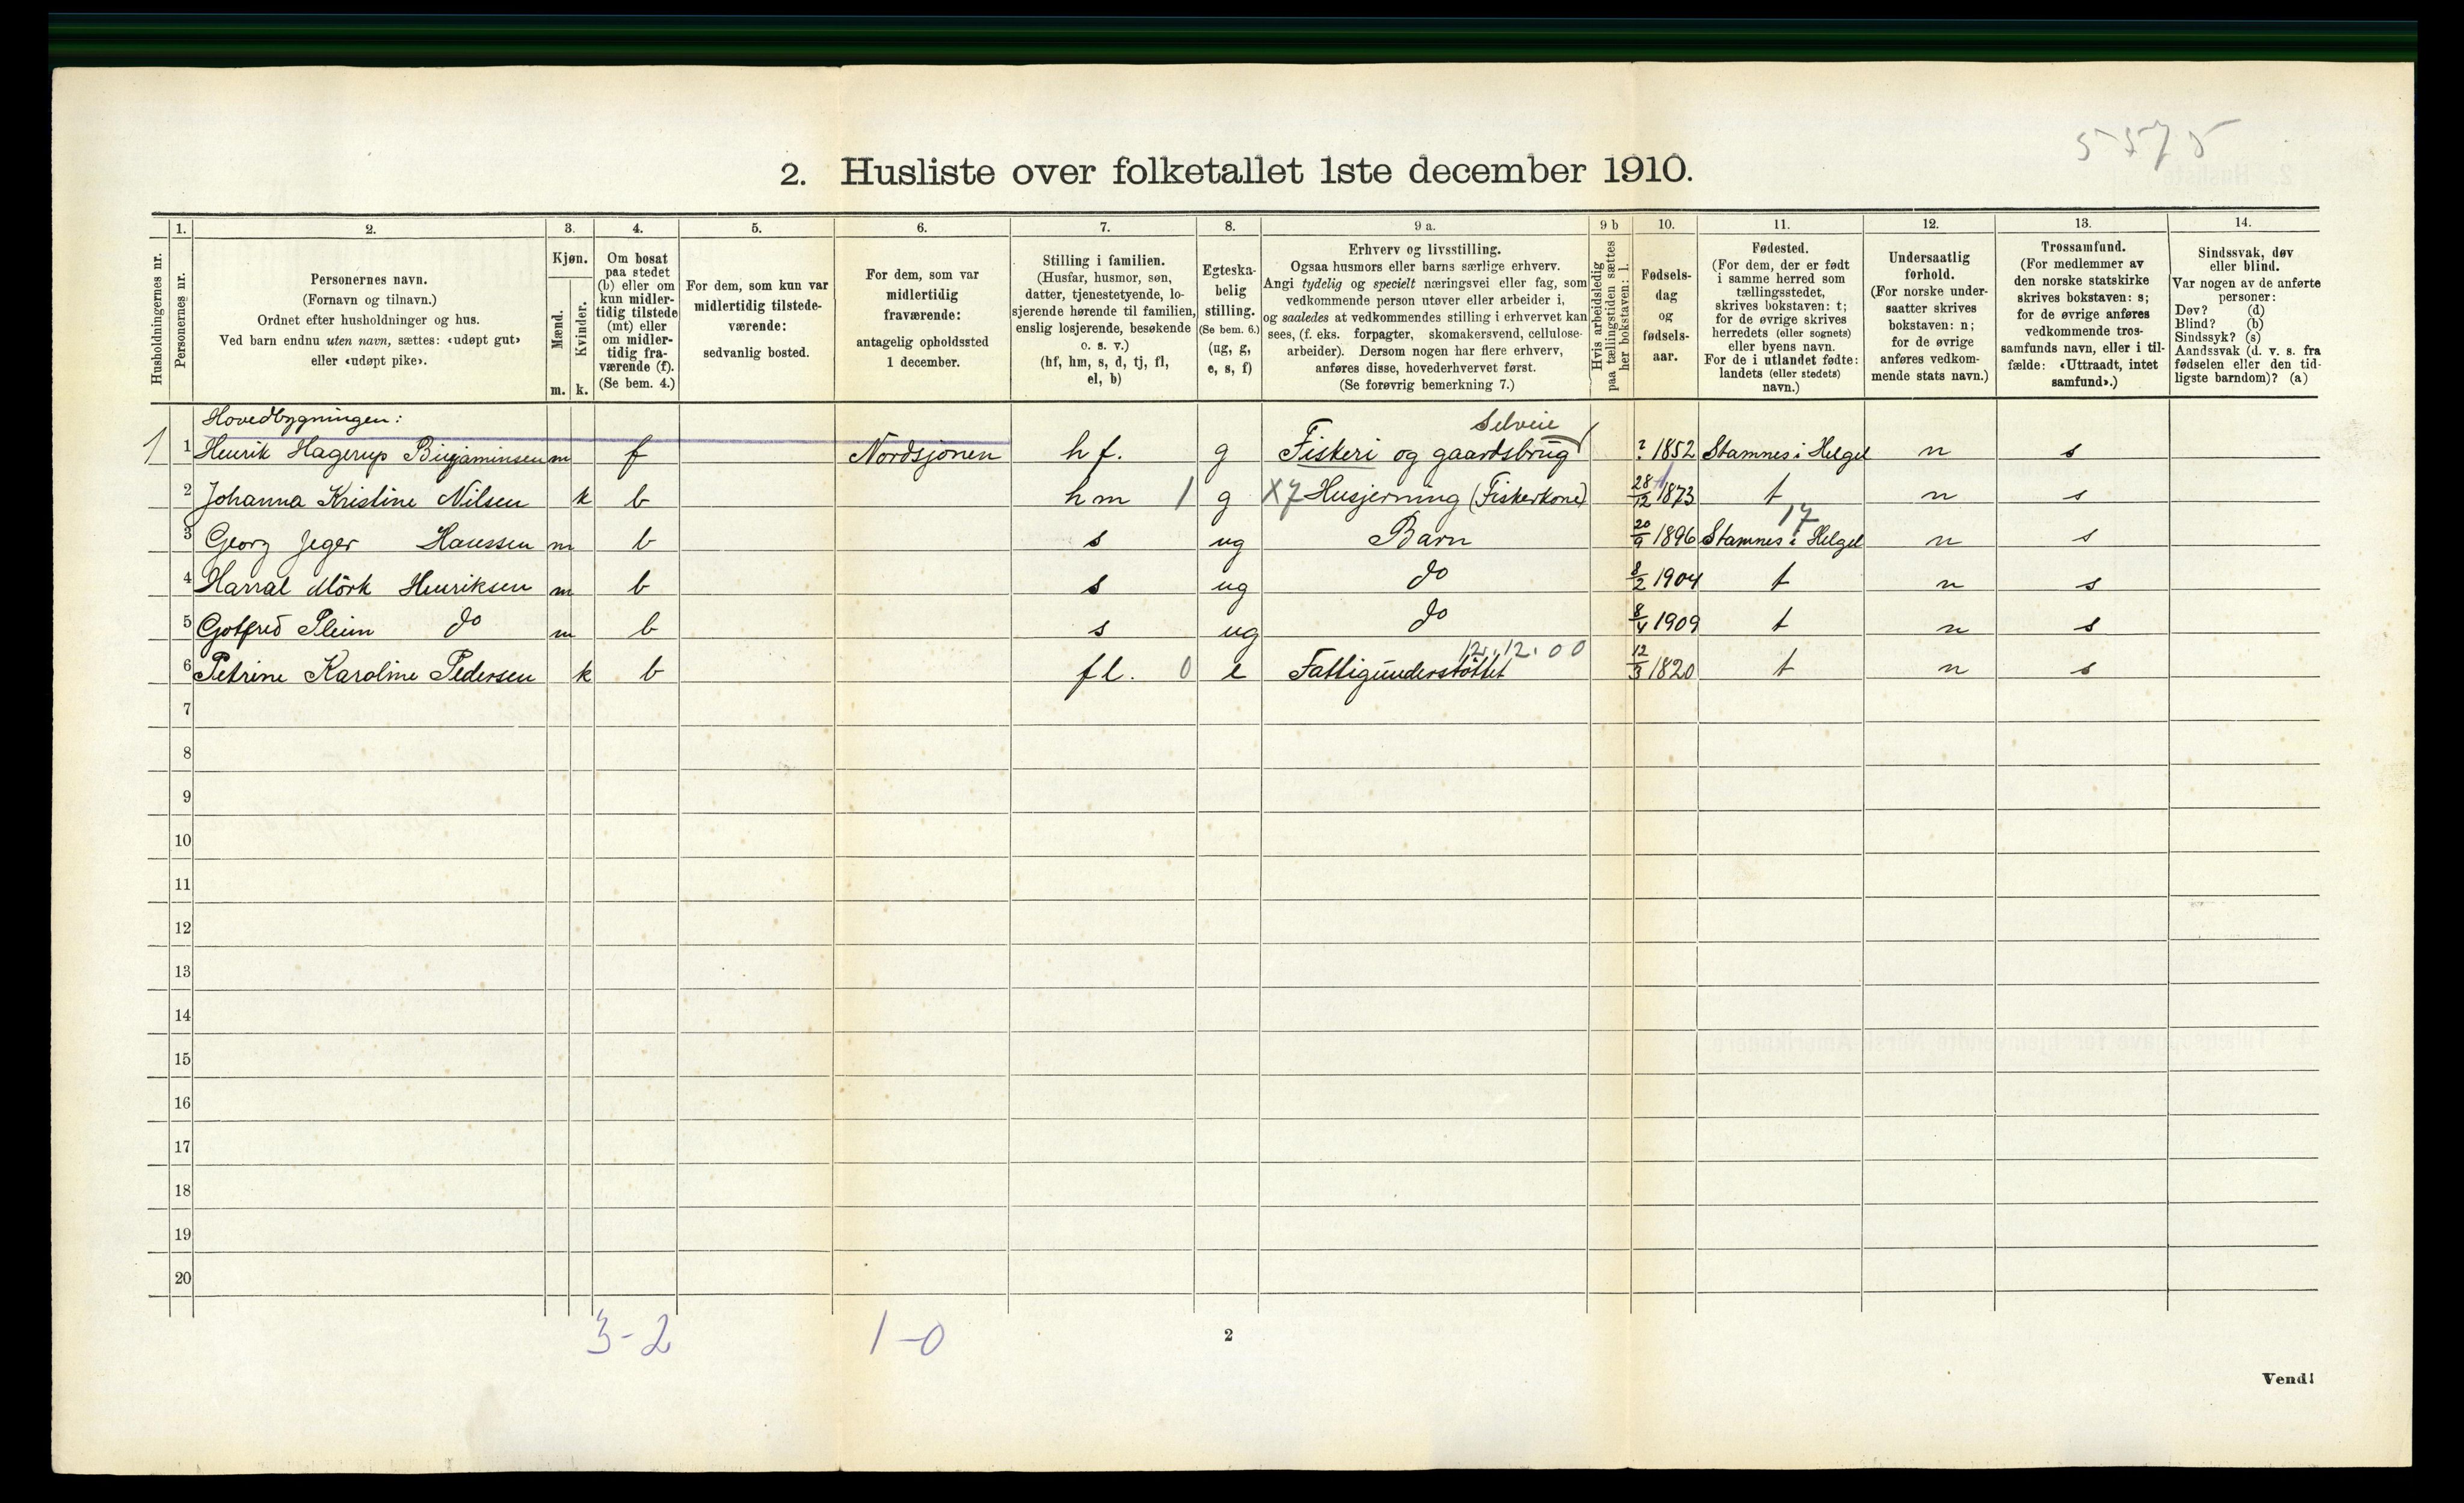 5575
2. Husliste over folketallet 1ste december 1910.
Husholdningernes nr.
1.
Personernes nr.
2.
Personernes navn.
(Fornavn og tilnavn.)
Ordnet efter husholdninger og hus.
Ved barn endnu uten navn, sættes: «udøpt gut»
eller «udøpt pike».
3.
Kjøn.
Mænd.
Kvinder.
m. k.
4.
Om bosat
paa stedet
(b) eller om
kun midler-
tidig tilstede
(mt) eller
om midler-
tidig fra-
værende (f).
(Se bem. 4.)
5.
For dem, som kun var
midlertidig tilstede-
værende:
sedvanlig bosted.
6.
For dem, som var
midlertidig
fraværende:
antagelig opholdssted
1 december.
7.
Stilling i familien.
(Husfar, husmor, søn,
datter, tjenestetyende, lo-
sjerende hørende til familien,
enslig losjerende, besøkende
o. s. v.)
(hf, hm, s, d, tj, fl,
el, b)
8.
Egteska-
belig
stilling.
(Se bem. 6.)
(ug, g,
e, s, f)
9 a.
Erhverv og livsstilling.
Ogsaa husmors eller barns særlige erhverv.
Angi tydelig og specielt næringsvei eller fag, som
vedkommende person utøver eller arbeider i,
og saaledes at vedkommendes stilling i erhvervet kan
sees, (f. eks. forpagter, skomakersvend, cellulose-
arbeider). Dersom nogen har flere erhverv,
anføres disse, hovederhvervet først.
(Se forøvrig bemerkning 7.)
9 b
Hvis arbeidsledig
paa tællingstiden sættes
her bokstaven: l.
10.
Fødsels-
dag
og
fødsels-
aar.
11.
Fødested.
(For dem, der er født
i samme herred som
tællingsstedet,
skrives bokstaven: t;
for de øvrige skrives
herredets (eller sognets)
eller byens navn.
For de i utlandet fødte:
landets (eller stedets)
navn.)
12.
Undersaatlig
forhold.
(For norske under-
saatter skrives
bokstaven: n;
for de øvrige
anføres vedkom-
mende stats navn.)
13.
Trossamfund.
(For medlemmer av
den norske statskirke
skrives bokstaven: s;
for de øvrige anføres
vedkommende tros-
samfunds navn, eller i til-
fælde: «Uttraadt, intet
samfund».)
14.
Sindssvak, døv
eller blind.
Var nogen av de anførte
personer:
Døv? (d)
Blind? (b)
Sindssyk? (s)
Aandssvak (d. v. s. fra
fødselen eller den tid-
ligste barndom)? (a)
Hovedbygningen:
Selveie
1 1 Henrik Hagerup Binjaminsen m f Nordsjønen hf. g Fiskeri og gaardsbrug ? 1852 Stamnes i Helgel n s
2 Johanna Kristine Nilsen k b hm 1 g X7 Husjerning (Fiskerkone) 28/12 1873 t n s
17
3 Georg Jeger Hanssen m b s ug Barn 20/9 1896 Stamnes i Helgel n s
4 Harral Mörk Henriksen m b s ug do 8/2 1904 t n s
5 Gotfred Pleim do m b s ug do 8/4 1909 t n s
12.12.00
6 Petrine Karoline Pedersen k b fl. 0 e Fattigunderstöttet 12/3 1820 t n s
7
8
9
10
11
12
13
14
15
16
17
18
19
20
3-2 1-0
2
Vend!